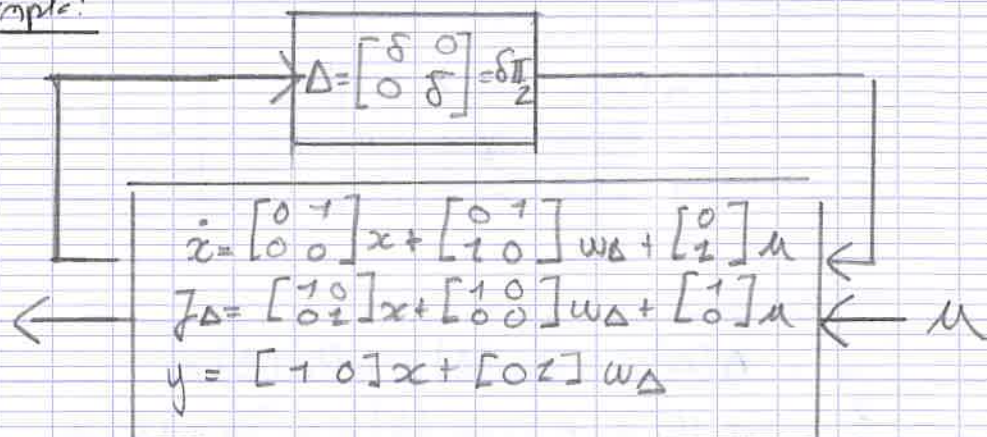 mple:
Δ = [δ 0; 0 δ] = δ𝕀₂
ẋ = [0 1; 0 0] x + [0 1; 1 0] w_Δ + [0; 1] u
z_Δ = [1 0; 0 1] x + [1 0; 0 0] w_Δ + [1; 0] u
u
y = [1 0] x + [0 1] w_Δ